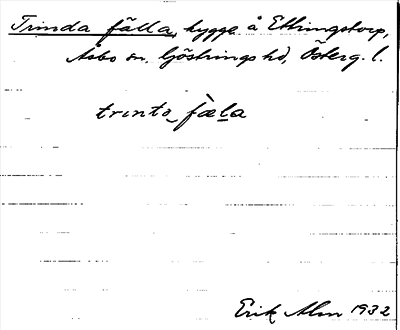 Trinda fälla, hygge å Ettingstorp,
Åsbo sn. Göstrings hd, Österg. l.
trınta fæ̀la
Erik Alm 1932